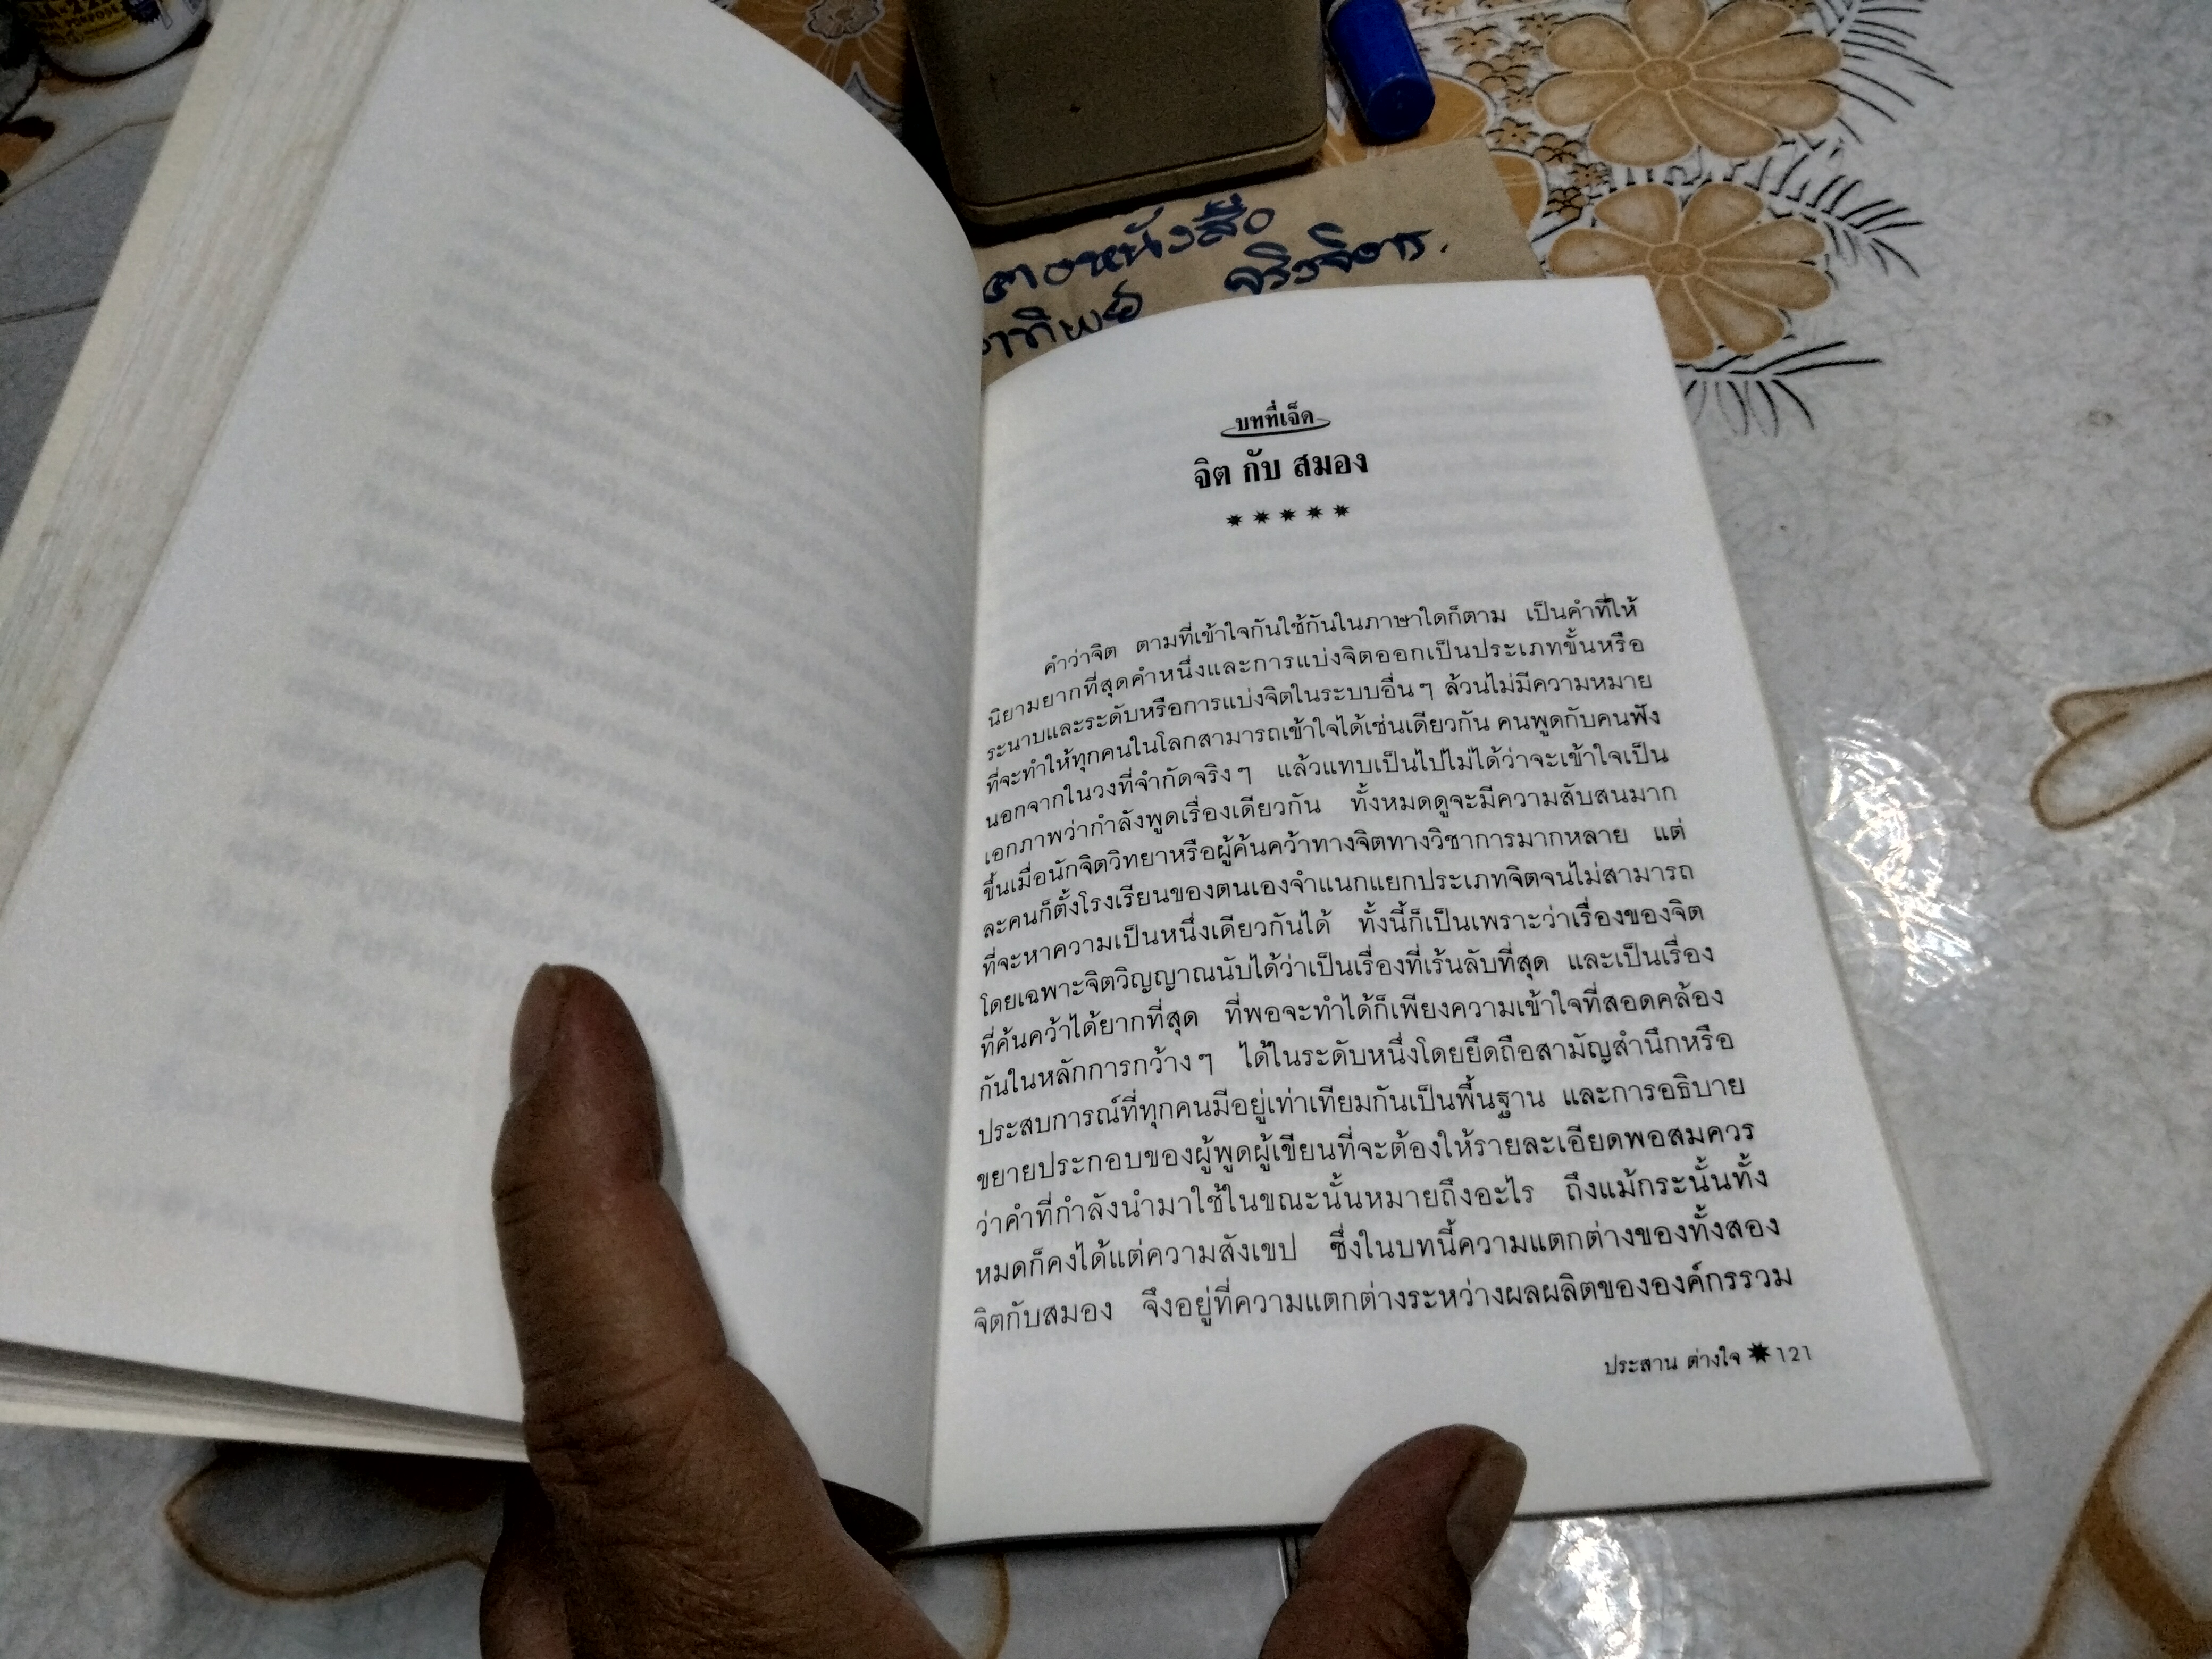 PURPOSE
หนังสือ
จริงจิตร.
บทที่เจ็ด
จิต กับ สมอง
คำว่าจิต ตามที่เข้าใจกันใช้กันในภาษาใดก็ตาม เป็นคำที่ให้
นิยามยากที่สุดคำหนึ่งและการแบ่งจิตออกเป็นประเภทขั้นหรือ
ระนาบและระดับหรือการแบ่งจิตในระบบอื่นๆ ล้วนไม่มีความหมาย
ที่จะทำให้ทุกคนในโลกสามารถเข้าใจได้เช่นเดียวกัน คนพูดกับคนฟัง
นอกจากในวงที่จำกัดจริงๆ แล้วแทบเป็นไปไม่ได้ว่าจะเข้าใจเป็น
เอกภาพว่ากำลังพูดเรื่องเดียวกัน ทั้งหมดดูจะมีความสับสนมาก
ขึ้นเมื่อนักจิตวิทยาหรือผู้ค้นคว้าทางจิตทางวิชาการมากหลาย แต่
ละคนก็ตั้งโรงเรียนของตนเองจำแนกแยกประเภทจิตจนไม่สามารถ
ที่จะหาความเป็นหนึ่งเดียวกันได้ ทั้งนี้ก็เป็นเพราะว่าเรื่องของจิต
โดยเฉพาะจิตวิญญาณนับได้ว่าเป็นเรื่องที่เร้นลับที่สุด และเป็นเรื่อง
ที่ค้นคว้าได้ยากที่สุด ที่พอจะทำได้ก็เพียงความเข้าใจที่สอดคล้อง
กันในหลักการกว้างๆ ได้ในระดับหนึ่งโดยยึดถือสามัญสำนึกหรือ
ประสบการณ์ที่ทุกคนมีอยู่เท่าเทียมกันเป็นพื้นฐาน และการอธิบาย
ขยายประกอบของผู้พูดผู้เขียนที่จะต้องให้รายละเอียดพอสมควร
ว่าคำที่กำลังนำมาใช้ในขณะนั้นหมายถึงอะไร ถึงแม้กระนั้นทั้ง
หมดก็คงได้แต่ความสังเขป ซึ่งในบทนี้ความแตกต่างของทั้งสอง
จิตกับสมอง จึงอยู่ที่ความแตกต่างระหว่างผลผลิตขององค์กรรวม
ประสาน ต่างใจ ✷ 121